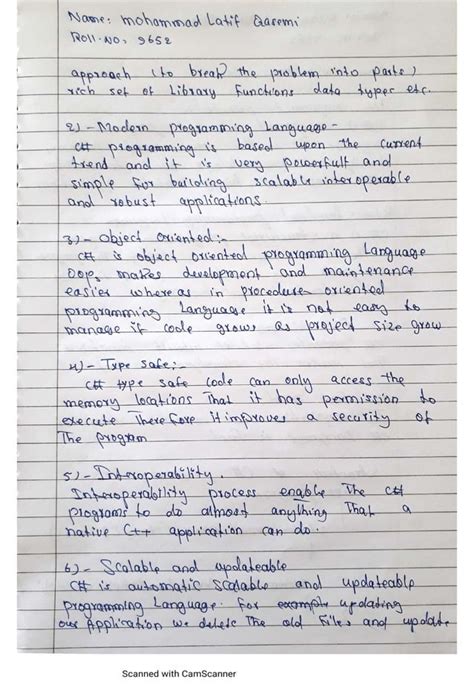 Name: Mohammad Latif Qaremi
Roll.No: 9652
approach (to break the problem into parts)
rich set of Library functions data types etc.
2)- Modern programming Language-
C# programming is based upon the current
trend and it is very powerfull and
simple for building scalable interoperable
and robust applications.
3)- object oriented:-
C# is object oriented programming Language
OOPs makes development and maintenance
easier where as in procedure oriented
programming Language it is not easy to
manage if code grows as project size grow
4)- Type safe:-
C# type safe code can only access the
memory locations That it has permission to
execute Therefore it improves a security of
The program
5)- Interoperability.
Interoperability process enable The C#
programs to do almost anything That a
native C++ application can do.
6)- Scalable and updateable
C# is automatic scalable and updateable
programming Language. For example updating
our Application we delete The old files and update
Scanned with CamScanner